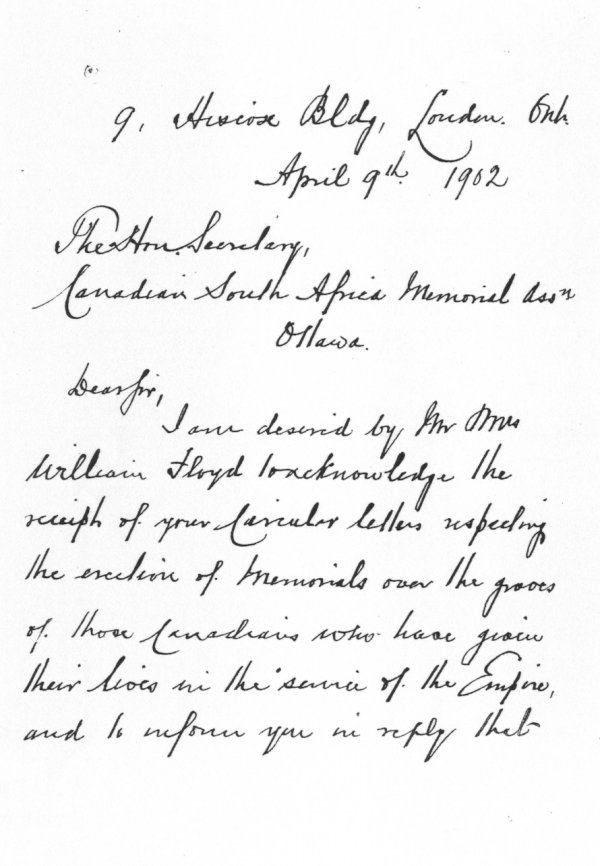 9, Hiscox Bldg, London. Ont.
April 9th. 1902
The Hon. Secretary,
Canadian South Africa Memorial Assn
Ottawa.
Dear Sir,
I am desired by Mr Mrs
William Floyd to acknowledge the
receipt of your Circular letters respecting
the erection of Memorials over the graves
of those Canadians who have given
their lives in the service of the Empire,
and to inform you in reply that